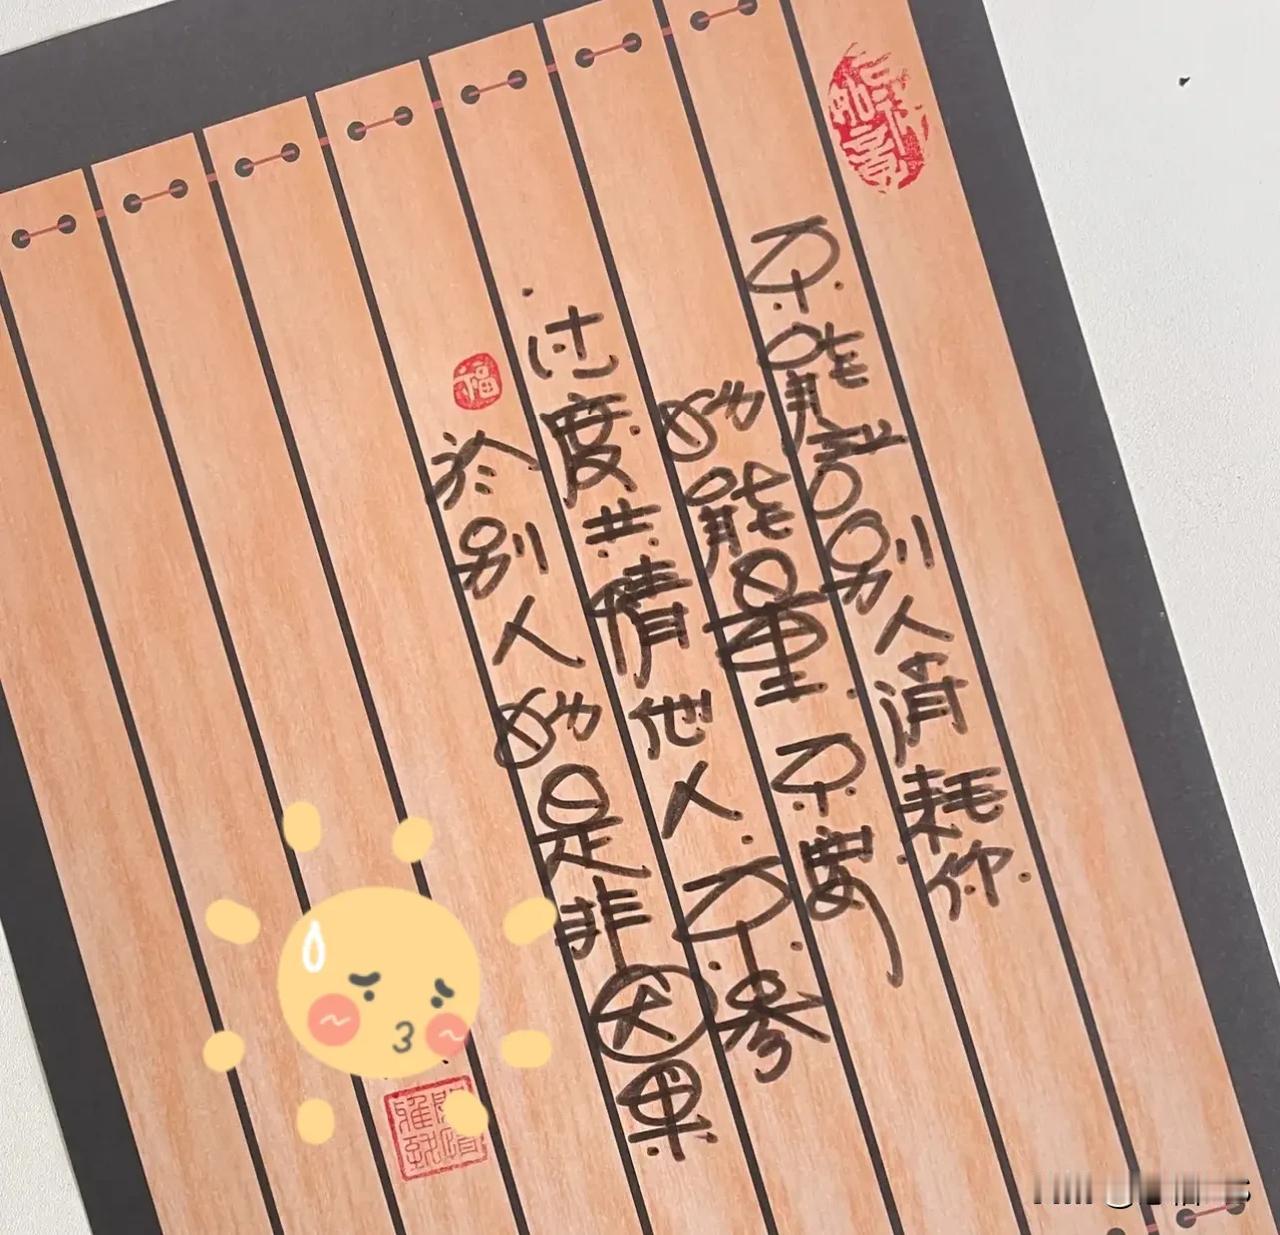 不能别人消耗你
的能量 不要
过度共情他人 不参
於别人的是非因果
福